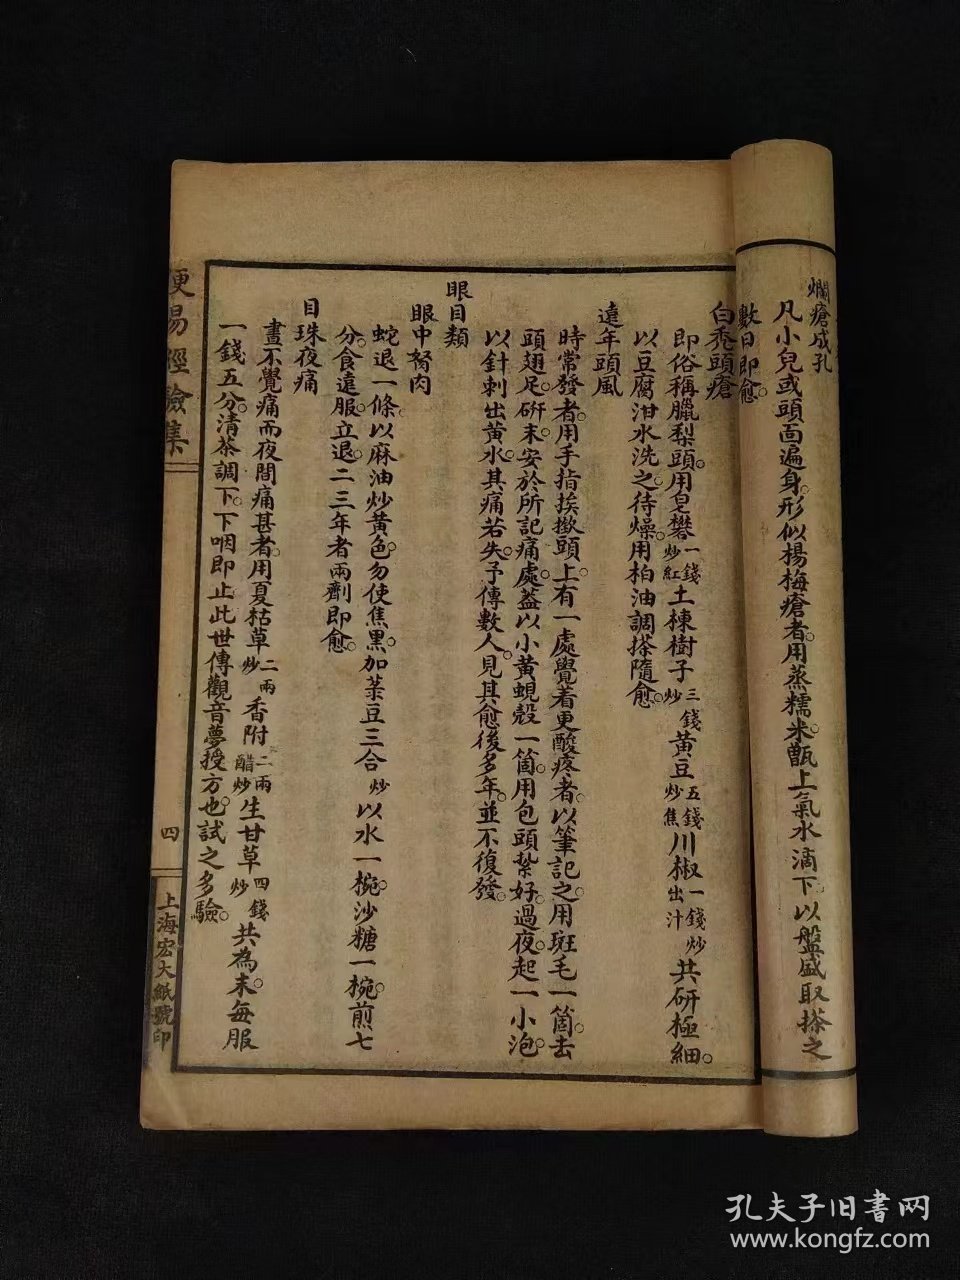 爛瘡成孔
凡小兒或頭面遍身形似楊梅瘡者用蒸糯米甑上氣水滴下以盤盛取搽之
數日即愈
白禿頭瘡
即俗稱臘梨頭用皂礬一錢炒紅土楝樹子三錢炒黃豆五錢炒焦川椒一錢炒出汁共研極細
以豆腐泔水洗之待燥用柏油調搽隨愈
遠年頭風
時常發者用手指挨撳頭上有一處覺着更酸疼者以筆記之用斑毛一箇去
頭翅足硏末安於所記痛處蓋以小黃蜆殼一箇用包頭紮好過夜起一小泡
以針刺出黃水其痛若失予傳數人見其愈後多年並不復發
眼目類
眼中胬肉
蛇退一條以麻油炒黃色勿使焦黑加菉豆三合炒以水一椀沙糖一椀煎七
分食遠服立退二三年者兩劑即愈
目珠夜痛
晝不覺痛而夜間痛甚者用夏枯草二兩炒香附二兩醋炒生甘草四錢炒共為末每服
一錢五分清茶調下下咽即止此世傳觀音夢授方也試之多驗
便易經驗集
四
上海宏大紙號印
孔夫子旧书网
www.kongfz.com